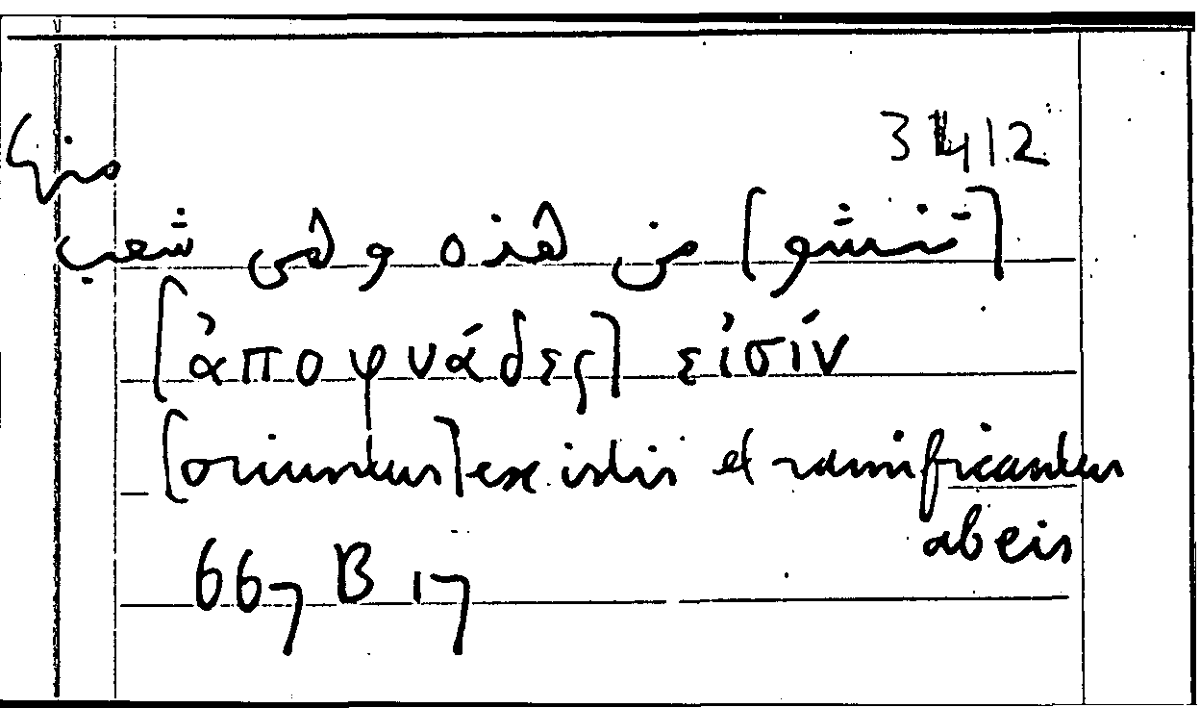 31412
[تنشو] من هذه وهى شعب
منها
[ἀποφυάδες] εἰσίν
[oriuntur] ex istis et ramificantur
ab eis
667 B 17